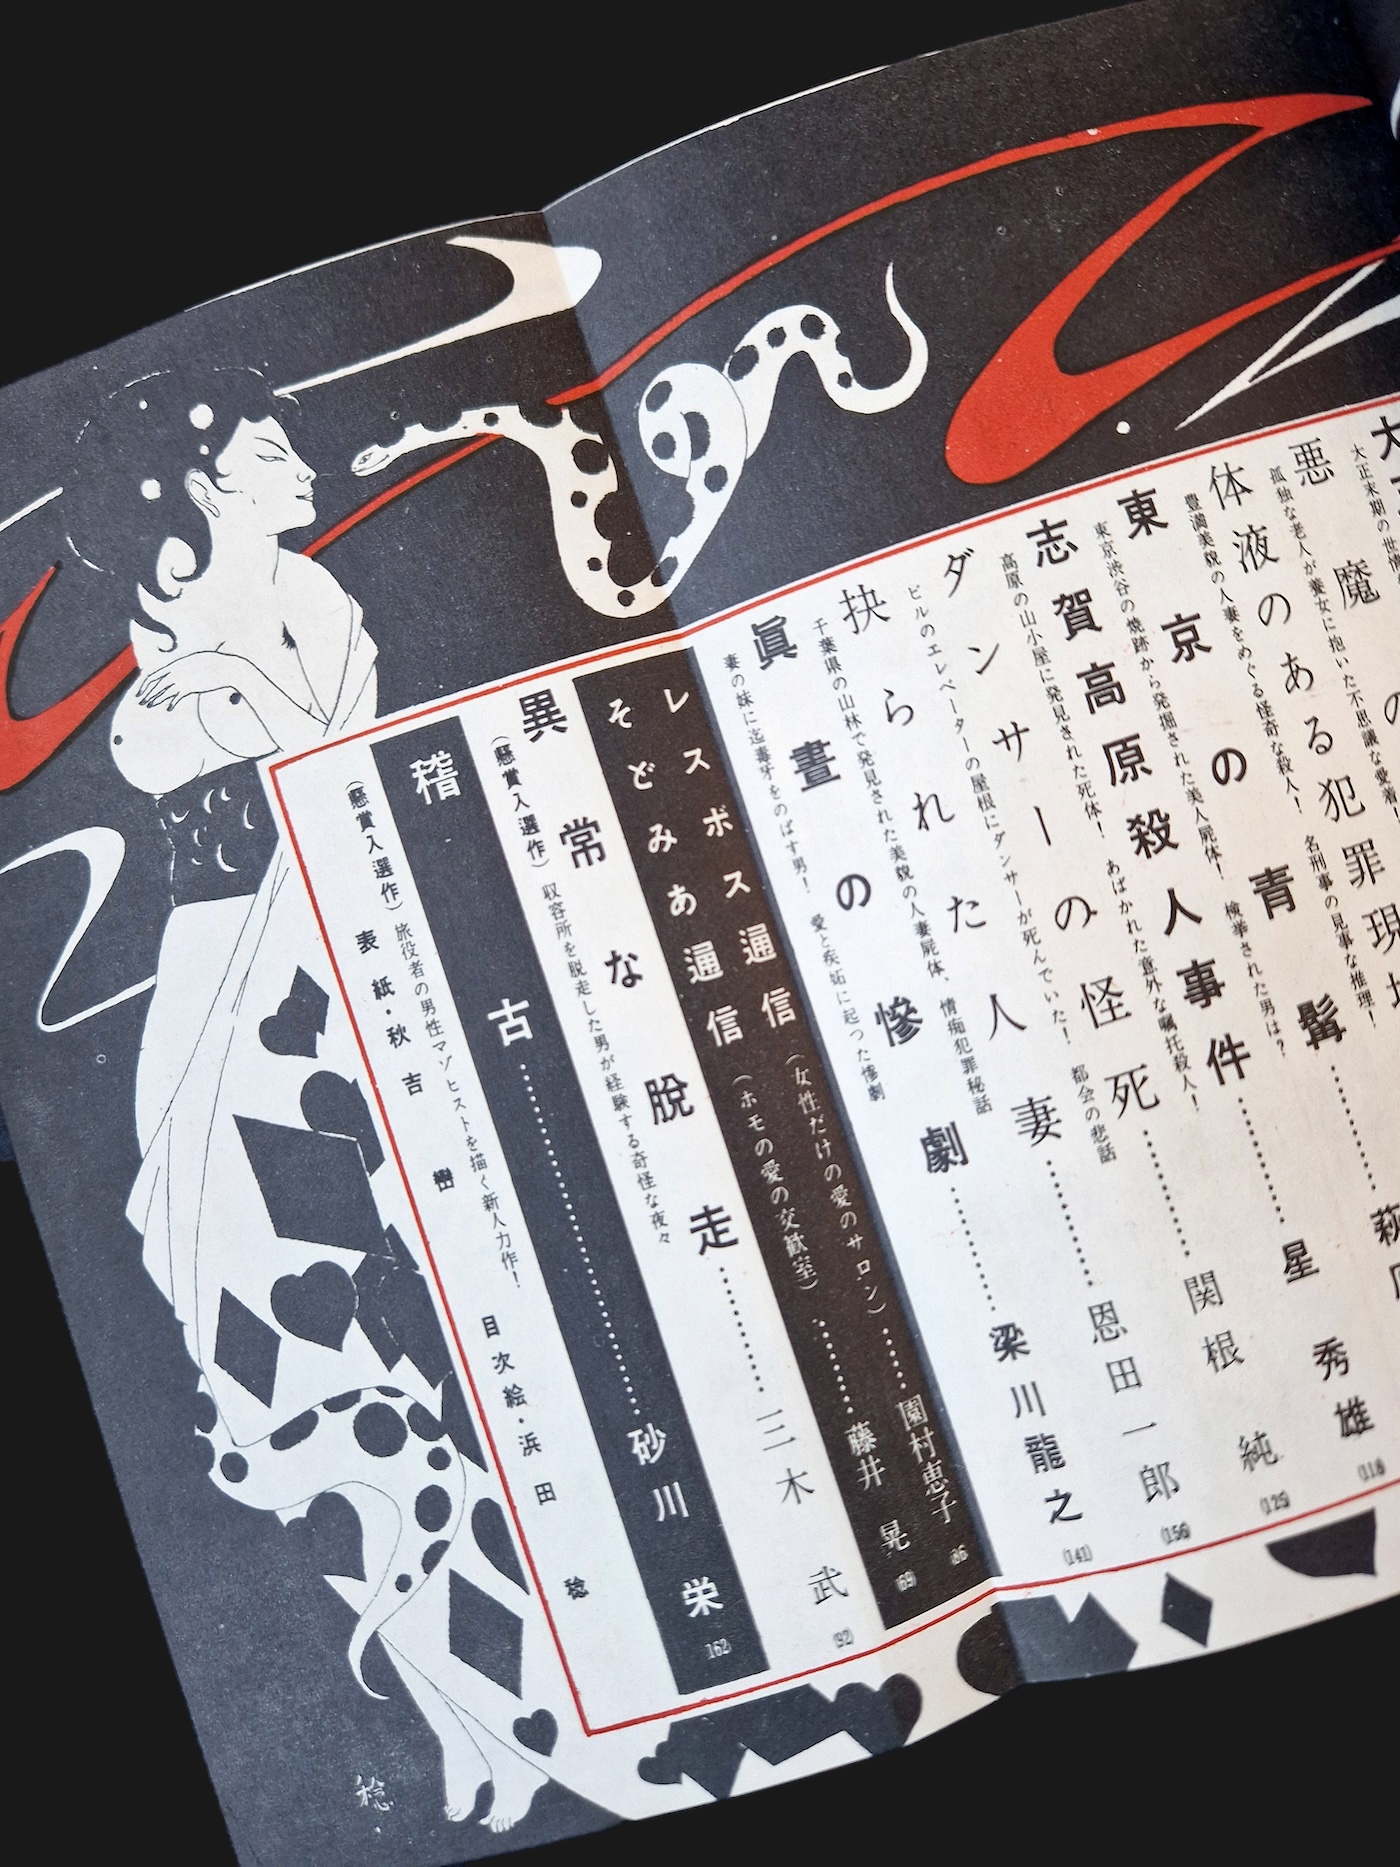 大正末期の世情
悪魔の
孤独な老人が養女に抱いた不思議な愛着
名刑事の見事な推理!
体液のある犯罪現
豊満美貌の人妻をめぐる怪奇な殺人!
検挙された男は?
東京の青髯
萩
(118)
東京渋谷の焼跡から発掘された美人屍体!
あばかれた意外な嘱托殺人!
志賀高原殺人事件
星秀雄
(125)
高原の山小屋に発見された死体!
都会の悲話
ダンサーの怪死
関根純
(156)
ビルのエレベーターの屋根にダンサーが死んでいた!
情痴犯罪秘話
抉られた人妻
恩田一郎
(141)
千葉県の山林で発見された美貌の人妻屍体、
愛と疾妬に起った惨劇
眞晝の慘劇
梁川龍之
妻の妹に迄毒牙をのばす男!
レスボス通信(女性だけの愛のサロン)
園村恵子
86
そどみあ通信(ホモの愛の交歓室)
藤井晃
(69)
異常な脱走
三木武
(92)
(懸賞入選作)収容所を脱走した男が経験する奇怪な夜々
稽古
砂川栄
162
(懸賞入選作)旅役者の男性マゾヒストを描く新人力作!
表紙・秋吉巒
目次絵・浜田稔
稔